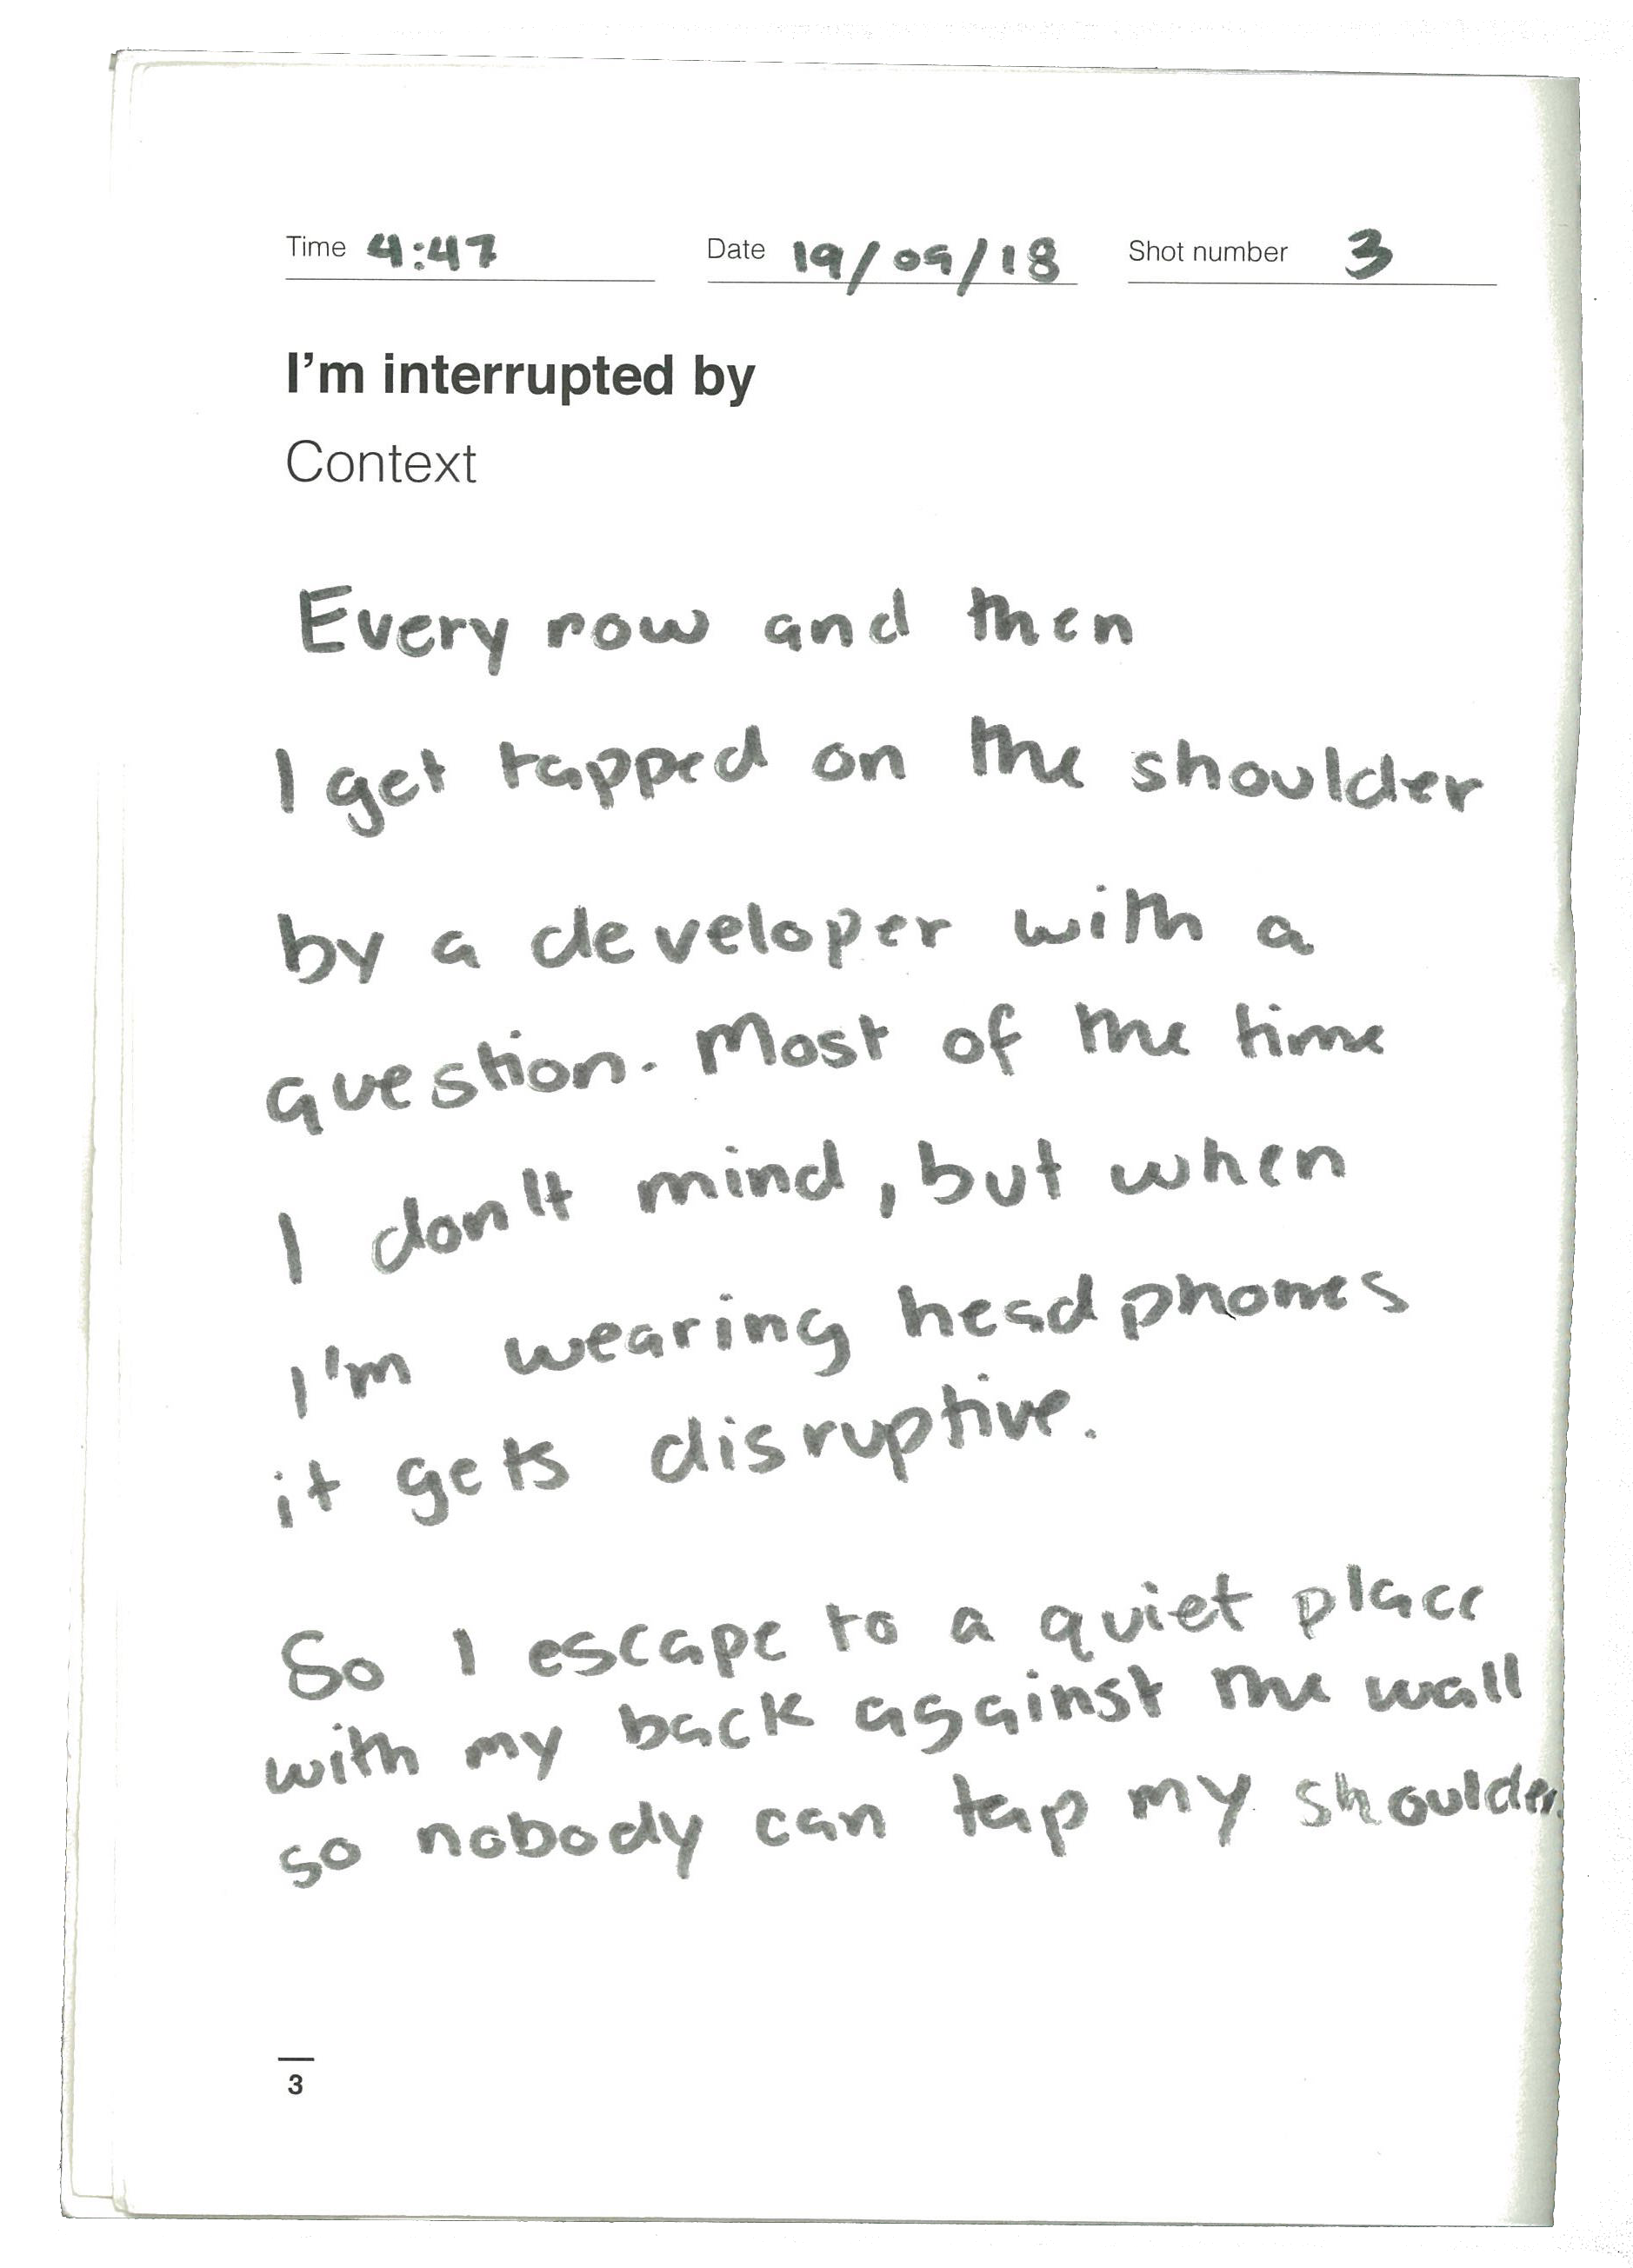 Time 4:47 Date 19/09/18 Shot number 3
I'm interrupted by
Context
Every now and then
I get tapped on the shoulder
by a developer with a
question. Most of the time
I don't mind, but when
I'm wearing headphones
it gets disruptive.
So I escape to a quiet place
with my back against the wall
so nobody can tap my shoulder.
3